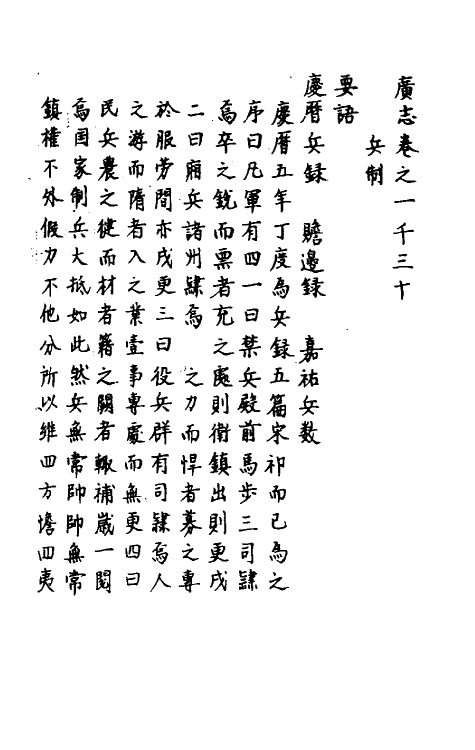 廣志卷之一千三十
兵制
要語
慶曆兵録　贍邊録　嘉祐兵数
慶曆五年丁度為兵録五篇宋祁而已為之
序曰凡軍有四一曰禁兵殿前馬步三司隸
焉卒之銳而票者充之處則衛鎮出則更戍
二曰廂兵諸州隸焉　之力而悍者募之專
於服劳間亦戍更三曰役兵群有司隸焉人
之游而隋者入之業壹事專處而無更四曰
民兵農之徤而材者籍之闕者輙補歲一閲
焉国家制兵大抵如此然兵無常帥帥無常
鎮權不外假力不他分所以維四方憺四夷